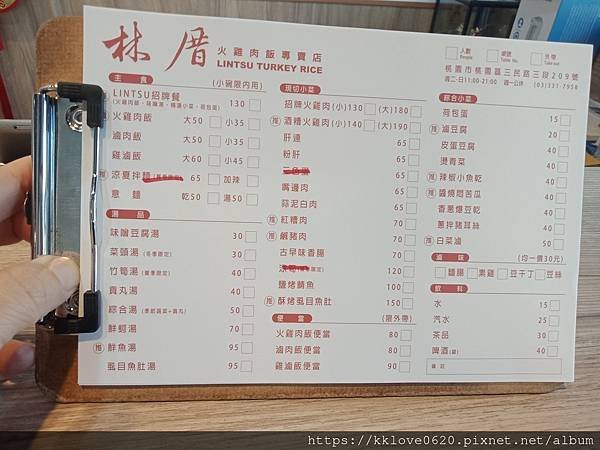 林厝
火雞肉飯專賣店
LINTSU TURKEY RICE
人數 People
桌號 Table no.
外帶 Take out
桃園市桃園區三民路三段209號
週二-日11:00-21:00 週一公休 (03)331-7958
主食 (小碗限內用)
LINTSU招牌餐 130
火雞肉飯 大50 小35
滷肉飯 大50 小35
雞滷飯 大60 小45
涼夏拌麵 65 加辣
意麵 乾50 湯50
湯品
味噌豆腐湯 30
菜頭湯 (冬季限定) 30
竹筍湯 (夏季限定) 40
貢丸湯 40
綜合湯 (季節蔬菜+貢丸) 50
鮮蚵湯 70
推 鮮魚湯 95
虱目魚肚湯 95
現切小菜
招牌火雞肉(小)130 (大)180
推 酒糟火雞肉(小)140 (大)190
肝連 65
粉肝 65
65
嘴邊肉 65
蒜泥白肉 65
推 紅糟肉 70
推 鹹豬肉 70
古早味香腸 70
120
鹽烤鯖魚 100
推 酥烤虱目魚肚 150
便當 (限外帶)
火雞肉飯便當 80
滷肉飯便當 80
雞滷飯便當 90
綜合小菜
荷包蛋 15
推 滷豆腐 20
皮蛋豆腐 40
燙青菜 40
推 辣椒小魚乾 40
推 醬燒悶苦瓜 40
香蔥爆豆乾 40
蔥拌豬耳絲 40
推 白菜滷 50
滷味 (均一價30元)
麵腸 素雞 豆干丁 豆絲
飲料
水 15
汽水 25
茶品 30
啤酒(罐) 40
備註
https://kklove0620.pixnet.net/album